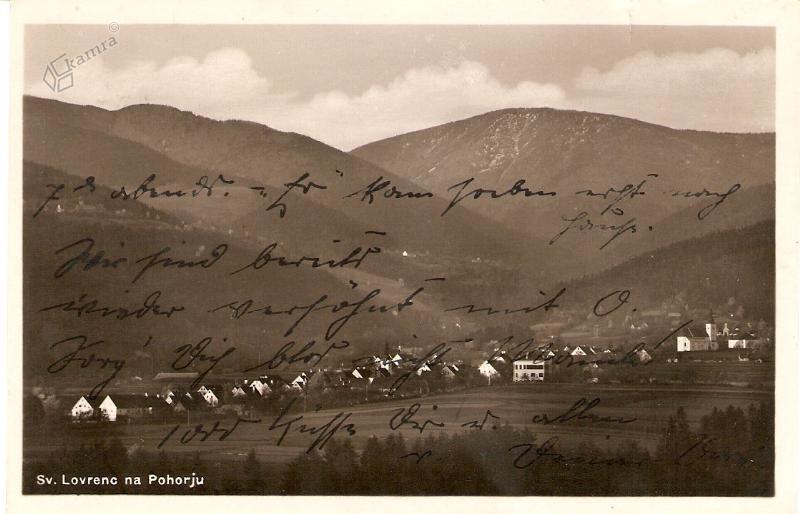 kamra
7h abends. - Er kam soeben erst nach
Hause.
Wir sind bereits
wieder versöhnt mit O.
Sorg' Dich blos nicht
1000 Küsse Dir u. allen
Sv. Lovrenc na Pohorju